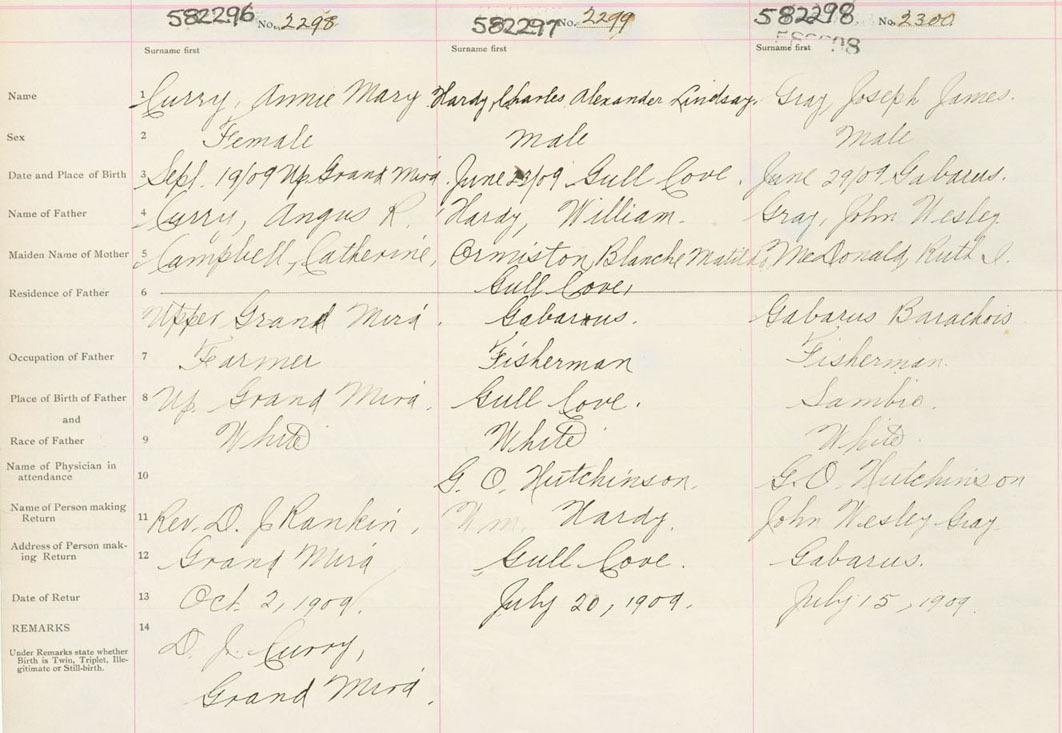 582296 No. 2298 582297 No. 2299 582298 No. 2300
Surname first Surname first Surname first
Name 1 Curry, Annie Mary Hardy, Charles Alexander Lindsay. Gray, Joseph James.
Sex 2 Female Male Male
Date and Place of Birth 3 Sept. 19/09 Up. Grand Mira. June /09 Gull Cove. June 29/09 Gabarus.
Name of Father 4 Curry, Angus R. Hardy, William. Gray, John Wesley
Maiden Name of Mother 5 Campbell, Catherine, Ormiston, Blanche Matilda, McDonald, Ruth I.
Gull Cove,
Residence of Father 6 Upper Grand Mira. Gabarus. Gabarus Barachois
Occupation of Father 7 Farmer Fisherman Fisherman.
Place of Birth of Father 8 Up. Grand Mira. Gull Cove. Sambro.
and
Race of Father 9 White White White.
Name of Physician in
attendance 10 G. O. Hutchinson. G. O. Hutchinson
Name of Person making
Return 11 Rev. D. J. Rankin, Wm. Hardy. John Wesley Gray
Address of Person mak-
ing Return 12 Grand Mira Gull Cove. Gabarus.
Date of Retur 13 Oct. 2, 1909. July 20, 1909. July 15, 1909
REMARKS 14
Under Remarks state whether
Birth is Twin, Triplet, Ille-
gitimate or Still-birth.
D. J. Curry,
Grand Mira.